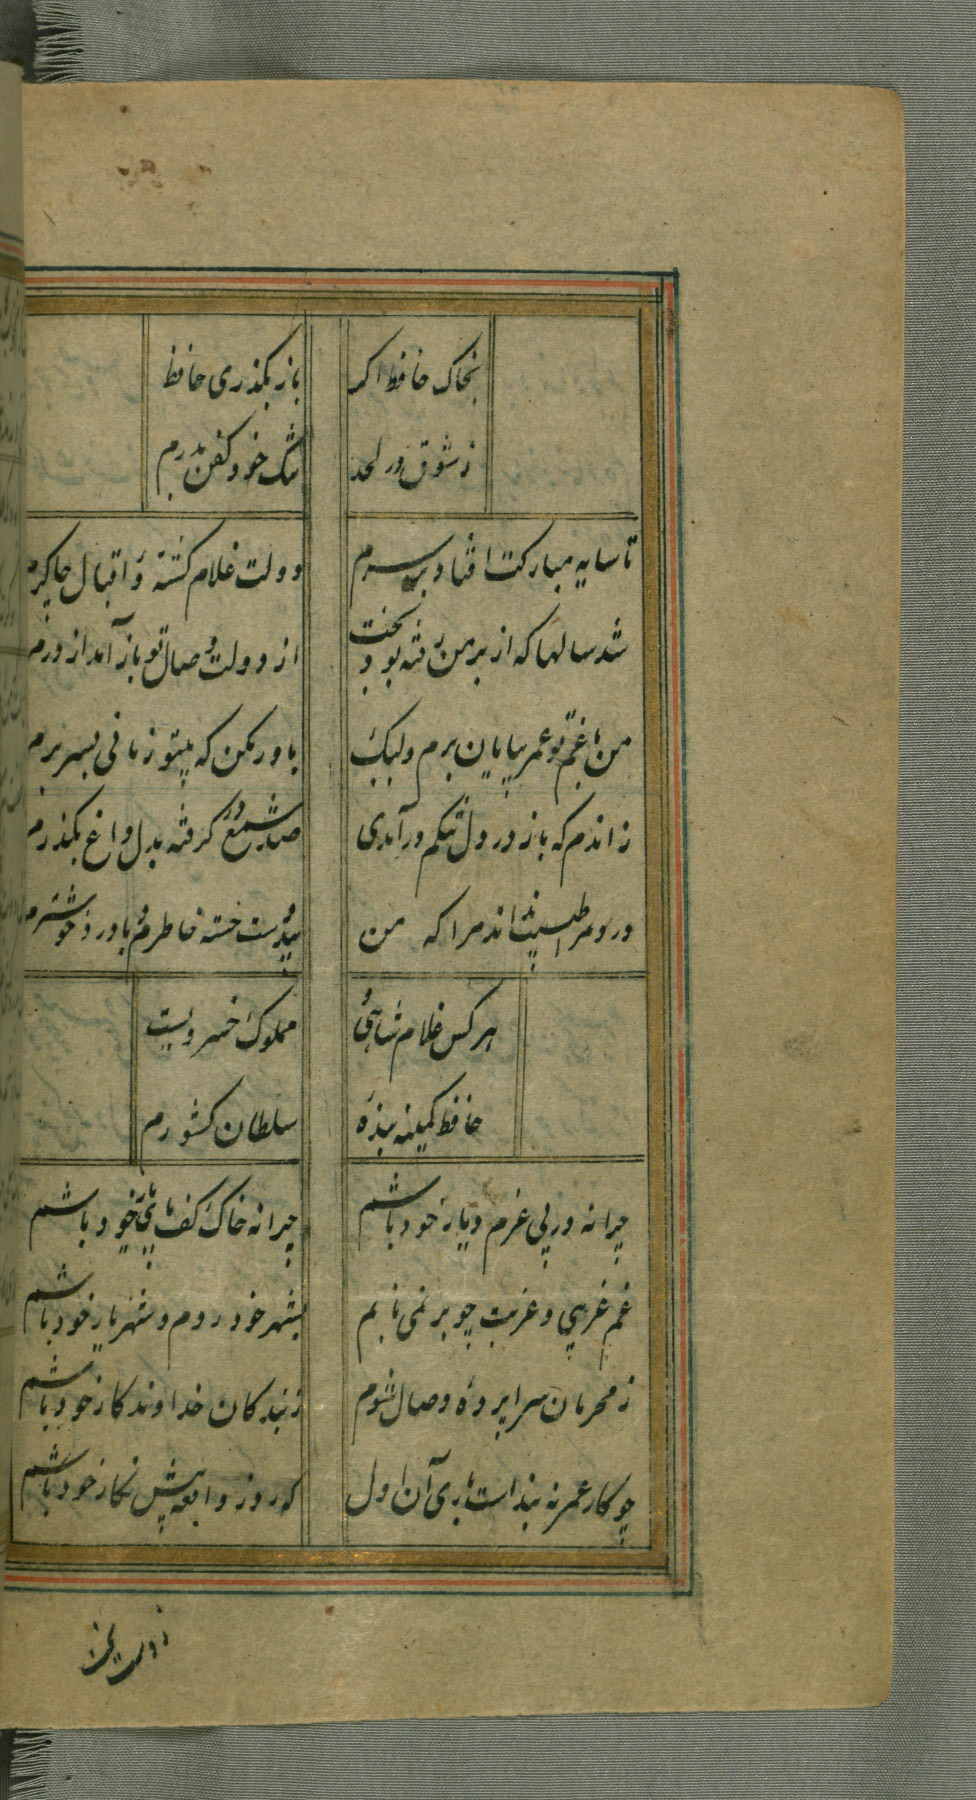 بخاک حافظ اگر
باز بگذری حافظ
ز شوق در لحد
تنگ خود کفن بدرم
تا سایه مبارکت افتاد بر سرم
دولت غلام گشته و اقبال چاکرم
شد سالها که از بر من رفته بود بخت
از دولت وصال تو باز آمد از درم
من با غم تو عمر بپایان برم ولیک
باور مکن که بیتو زمانی بسر برم
زاندم که باز در دل تنگم درآمدی
صد شمع در گرفته بدل داغ بگذرم
درد مرا طبیب نداند مرا که من
بیدوست خسته خاطرم و با درد خوشترم
هر کس غلام شاهی و
مملوک خسرویست
حافظ کمینه بنده
سلطان کشورم
چرا نه در پی عزم دیار خود باشم
چرا نه خاک کف پای یار خود باشم
غم غریبی و غربت چو بر نمی تابم
بشهر خود روم و شهریار خود باشم
ز محرمان سراپرده وصال شوم
ز بندکان خداوندکار خود باشم
چو کار عمر نه پیداست باری آن اول
که روز واقعه پیش نکار خود باشم
ز دست بخت